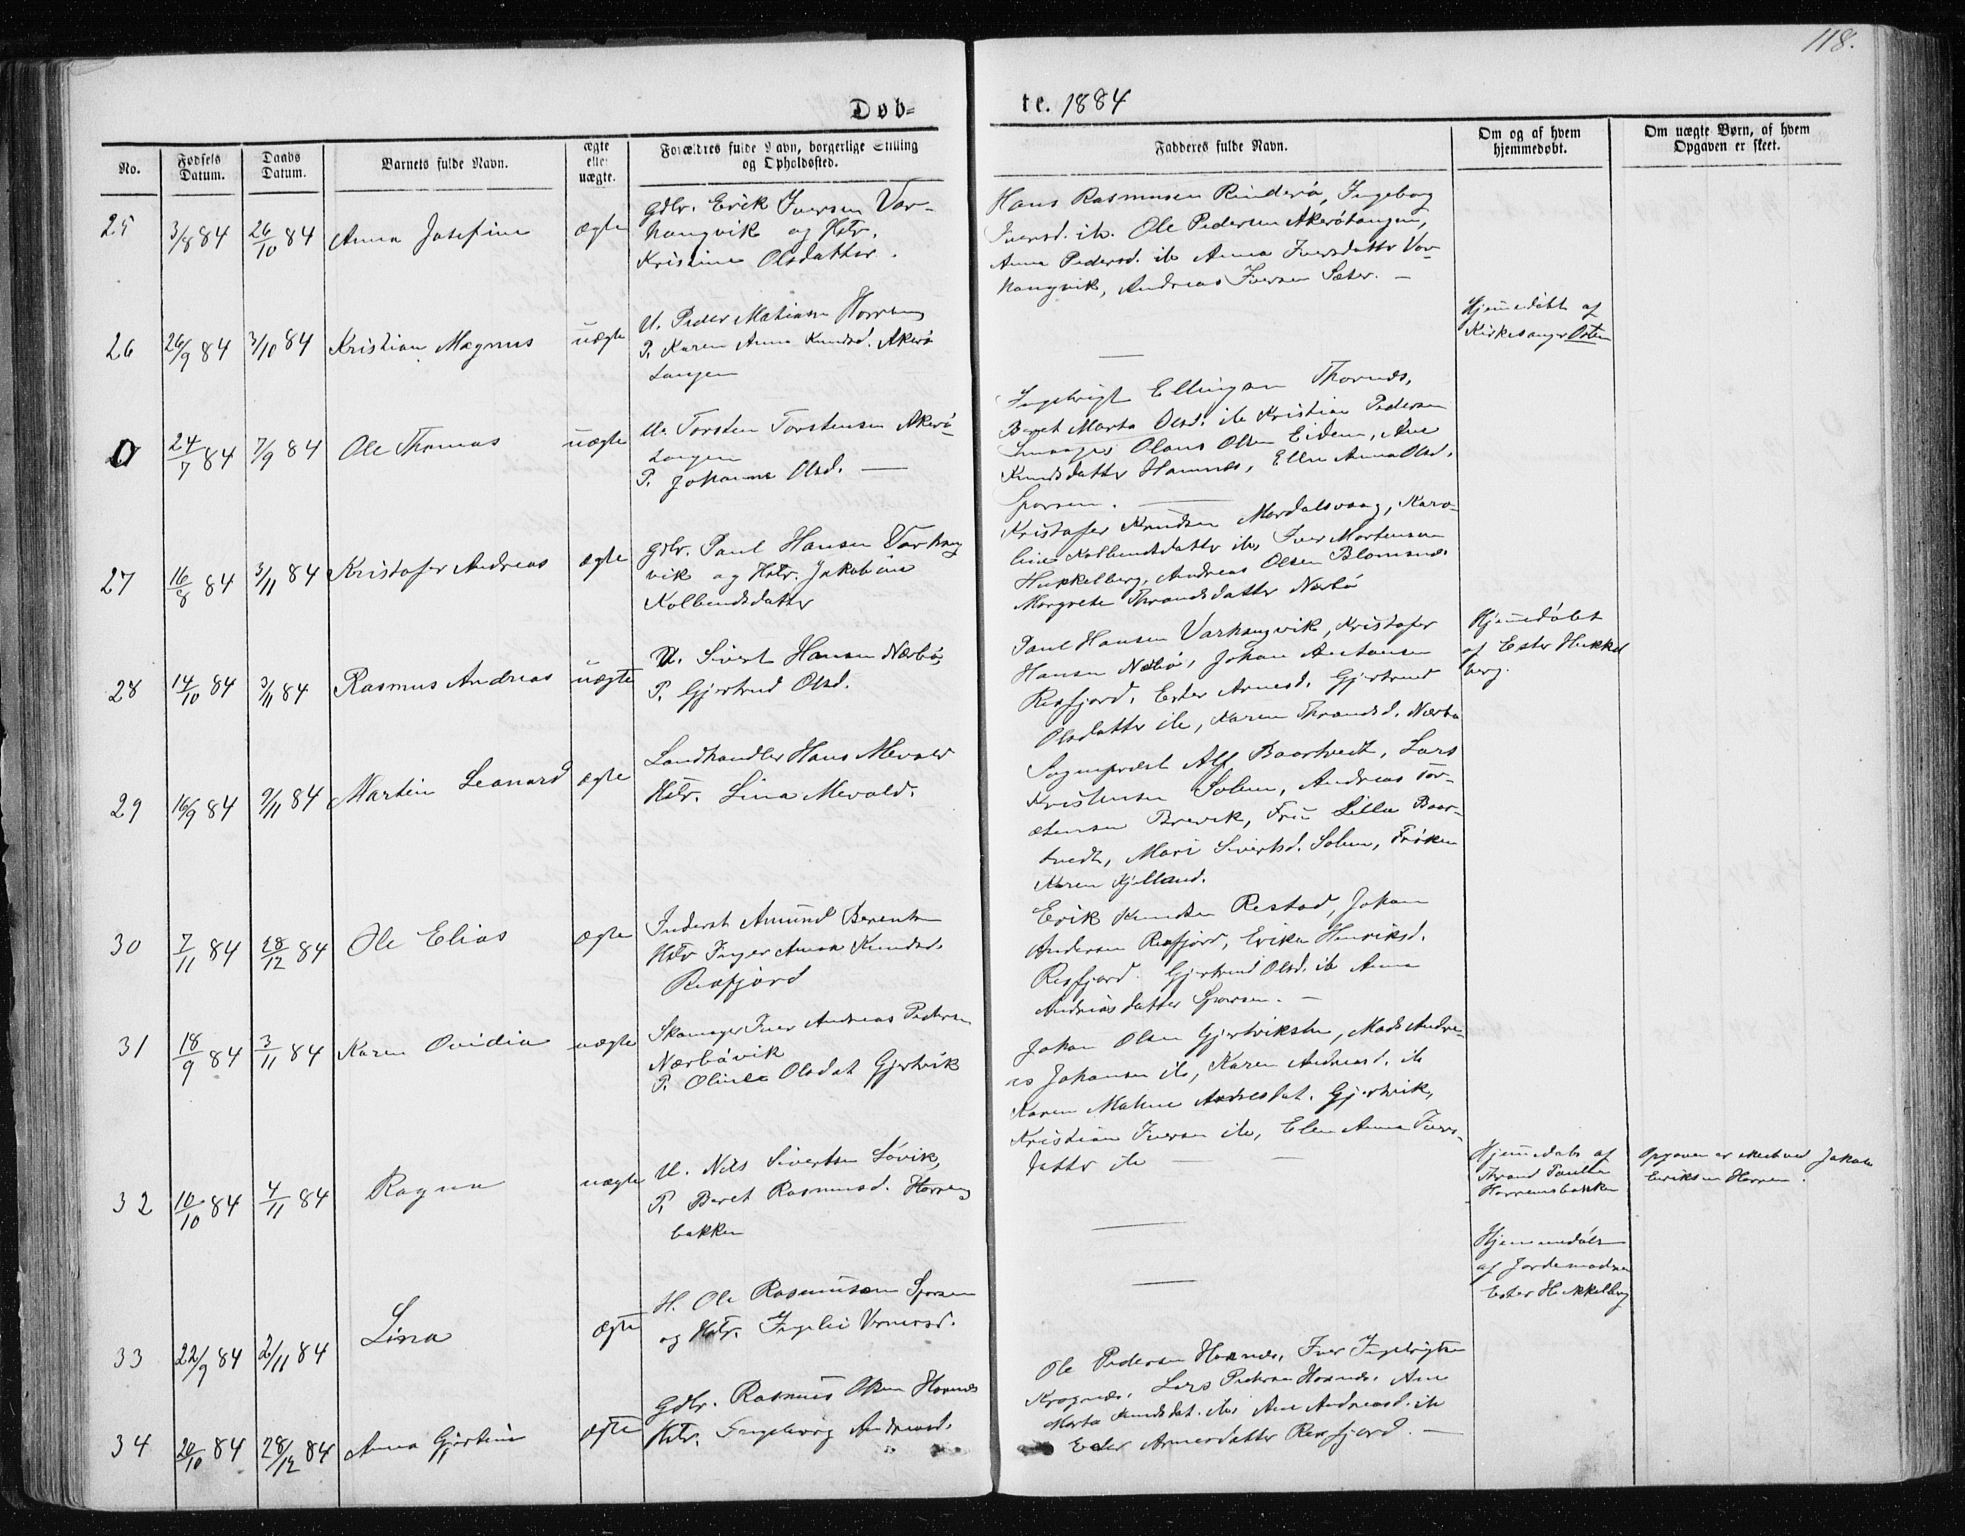 118.
Døb-
te. 1884
No.
Fødsels Datum.
Daabs Datum.
Barnets fulde Navn.
ægte eller uægte.
Forældres fulde Navn, borgerlige Stilling og Opholdssted.
Fadderes fulde Navn.
Om og af hvem hjemmedøbt.
Om uægte Børn, af hvem Opgaven er skeet.
25 3/8 84 26/10 84 Anna Josefine ægte
Gdbr. Erik Iversen Var-
hangvik og Hstr.
Kristine Olsdatter.
Hans Rasmussen Rinderö, Ingeborg
Iversd. ib. Ole Pedersen Akerötangen,
Anna Pedersd. ib Anna Iversdattr Var-
hangvik, Andreas Iversen Sæter. —
26 26/9 84 3/10 84 Kristian Magnus uægte
U. Peder Matiasen
P. Karen Anna Knudsd. Akerö
tangen
Hjemmedøbt af
Kirkesanger Osten
O 24/7 84 7/9 84 Ole Thomas uægte
U. Torsten Torstensen Akerö-
tangen
P. Johanna Olsd. —
Ingebrigt Ellingsen Thornes,
Beret Marta Olsd. ib Kristian Pedersen
Olaus Olsen Eidem, Ane
Knudsdatter Hamnes, Ellen Anna Olsd.
Sporsem. —
27 16/8 84 3/11 84 Kristofer Andreas ægte
Gdbr. Paul Hansen Varhang
vik og Hstr. Jakobine
Kolbensdatter
Kristofer Knudsen Mordalsvaag, Karo-
line Kolbensdattr ib, Iver Mortensen
Hukkelberg, Andreas Olsen Blomsnes
Margrete Throndsdatter Nærbö
28 14/10 84 3/11 84 Rasmus Andreas uægte
U. Sivert Hansen Nærbö,
P. Gjertrud Olsd.
Paul Hansen Varhangvik, Kristofer
Hansen Nærbö, Johan Antonsen
Resfjord, Ester Arnesd. Gjertrud
Olsdatter ib, Karen Throndsd. Nærbö
Hjemmedöbt
af Ester Hukkel
berg.
29 16/9 84 9/11 84 Martin Leonard ægte
Landhandler Hans Mevold
Hstr. Lina Mevold.
Sogneprest Alf Baartvedt, Lars
Kristensen Solem, Andreas Tor-
stensen Brevik, Fru Lilla Baar-
tvedt, Mari Sivertsd. Solem, Frøken
Karen Kjelland.
30 7/11 84 28/12 84 Ole Elias ægte
Inderst Amund Berentsen
Hstr Inger Anna Knudsd.
Resfjord
Erik Knudsen Restad, Johan
Andersen Resfjord, Erika Henriksd.
Resfjord. Gjertrud Olsd. ib Anna
Andreasdatter Sporsem. —
31 18/9 84 3/11 84 Karen Ovidia uægte
Skomager Iver Andreas Pedersen
Nærbövik
P. Oline Olsdat Gjertvik
Johan Olsen Gjertvik, Mads Andre-
as Johansen ib, Karen Andreasd. ib
Karen Malene Andresdat. Gjertvik,
Kristian Iversen ib, Elen Anna Ivers-
datter ib — —
32 10/10 84 4/11 84 Ragna uægte
U. Nils Sivertsen Sövik,
P. Beret Rasmusd. Harrem
bakken
—
Hjemmedøbt af
Thrond Paulsen
Harremsbakken
Opgaven er skeet ved Jakob
Eriksen Harrem.
33 22/9 84 2/11 84 Lina ægte
H. Ole Rasmussen Sporsem
og Hstr. Ingelei Vernersd.
—
Hjemmedøbt
af Jordemoderen
Ester Hukkelberg
34 20/10 84 28/12 84 Anna Gjertine ægte
Gdbr. Rasmus Olsen Hamnes
Hstr. Ingeborg Andreasd.
Ole Pedersen Hamnes, Iver Ingebrigtsen
Krognæs, Lars Pedersen Hamnes. Ane
Marta Knudsdat. ib, Ane Andreasd. ib
Ester Arnesdatter Resfjord. —